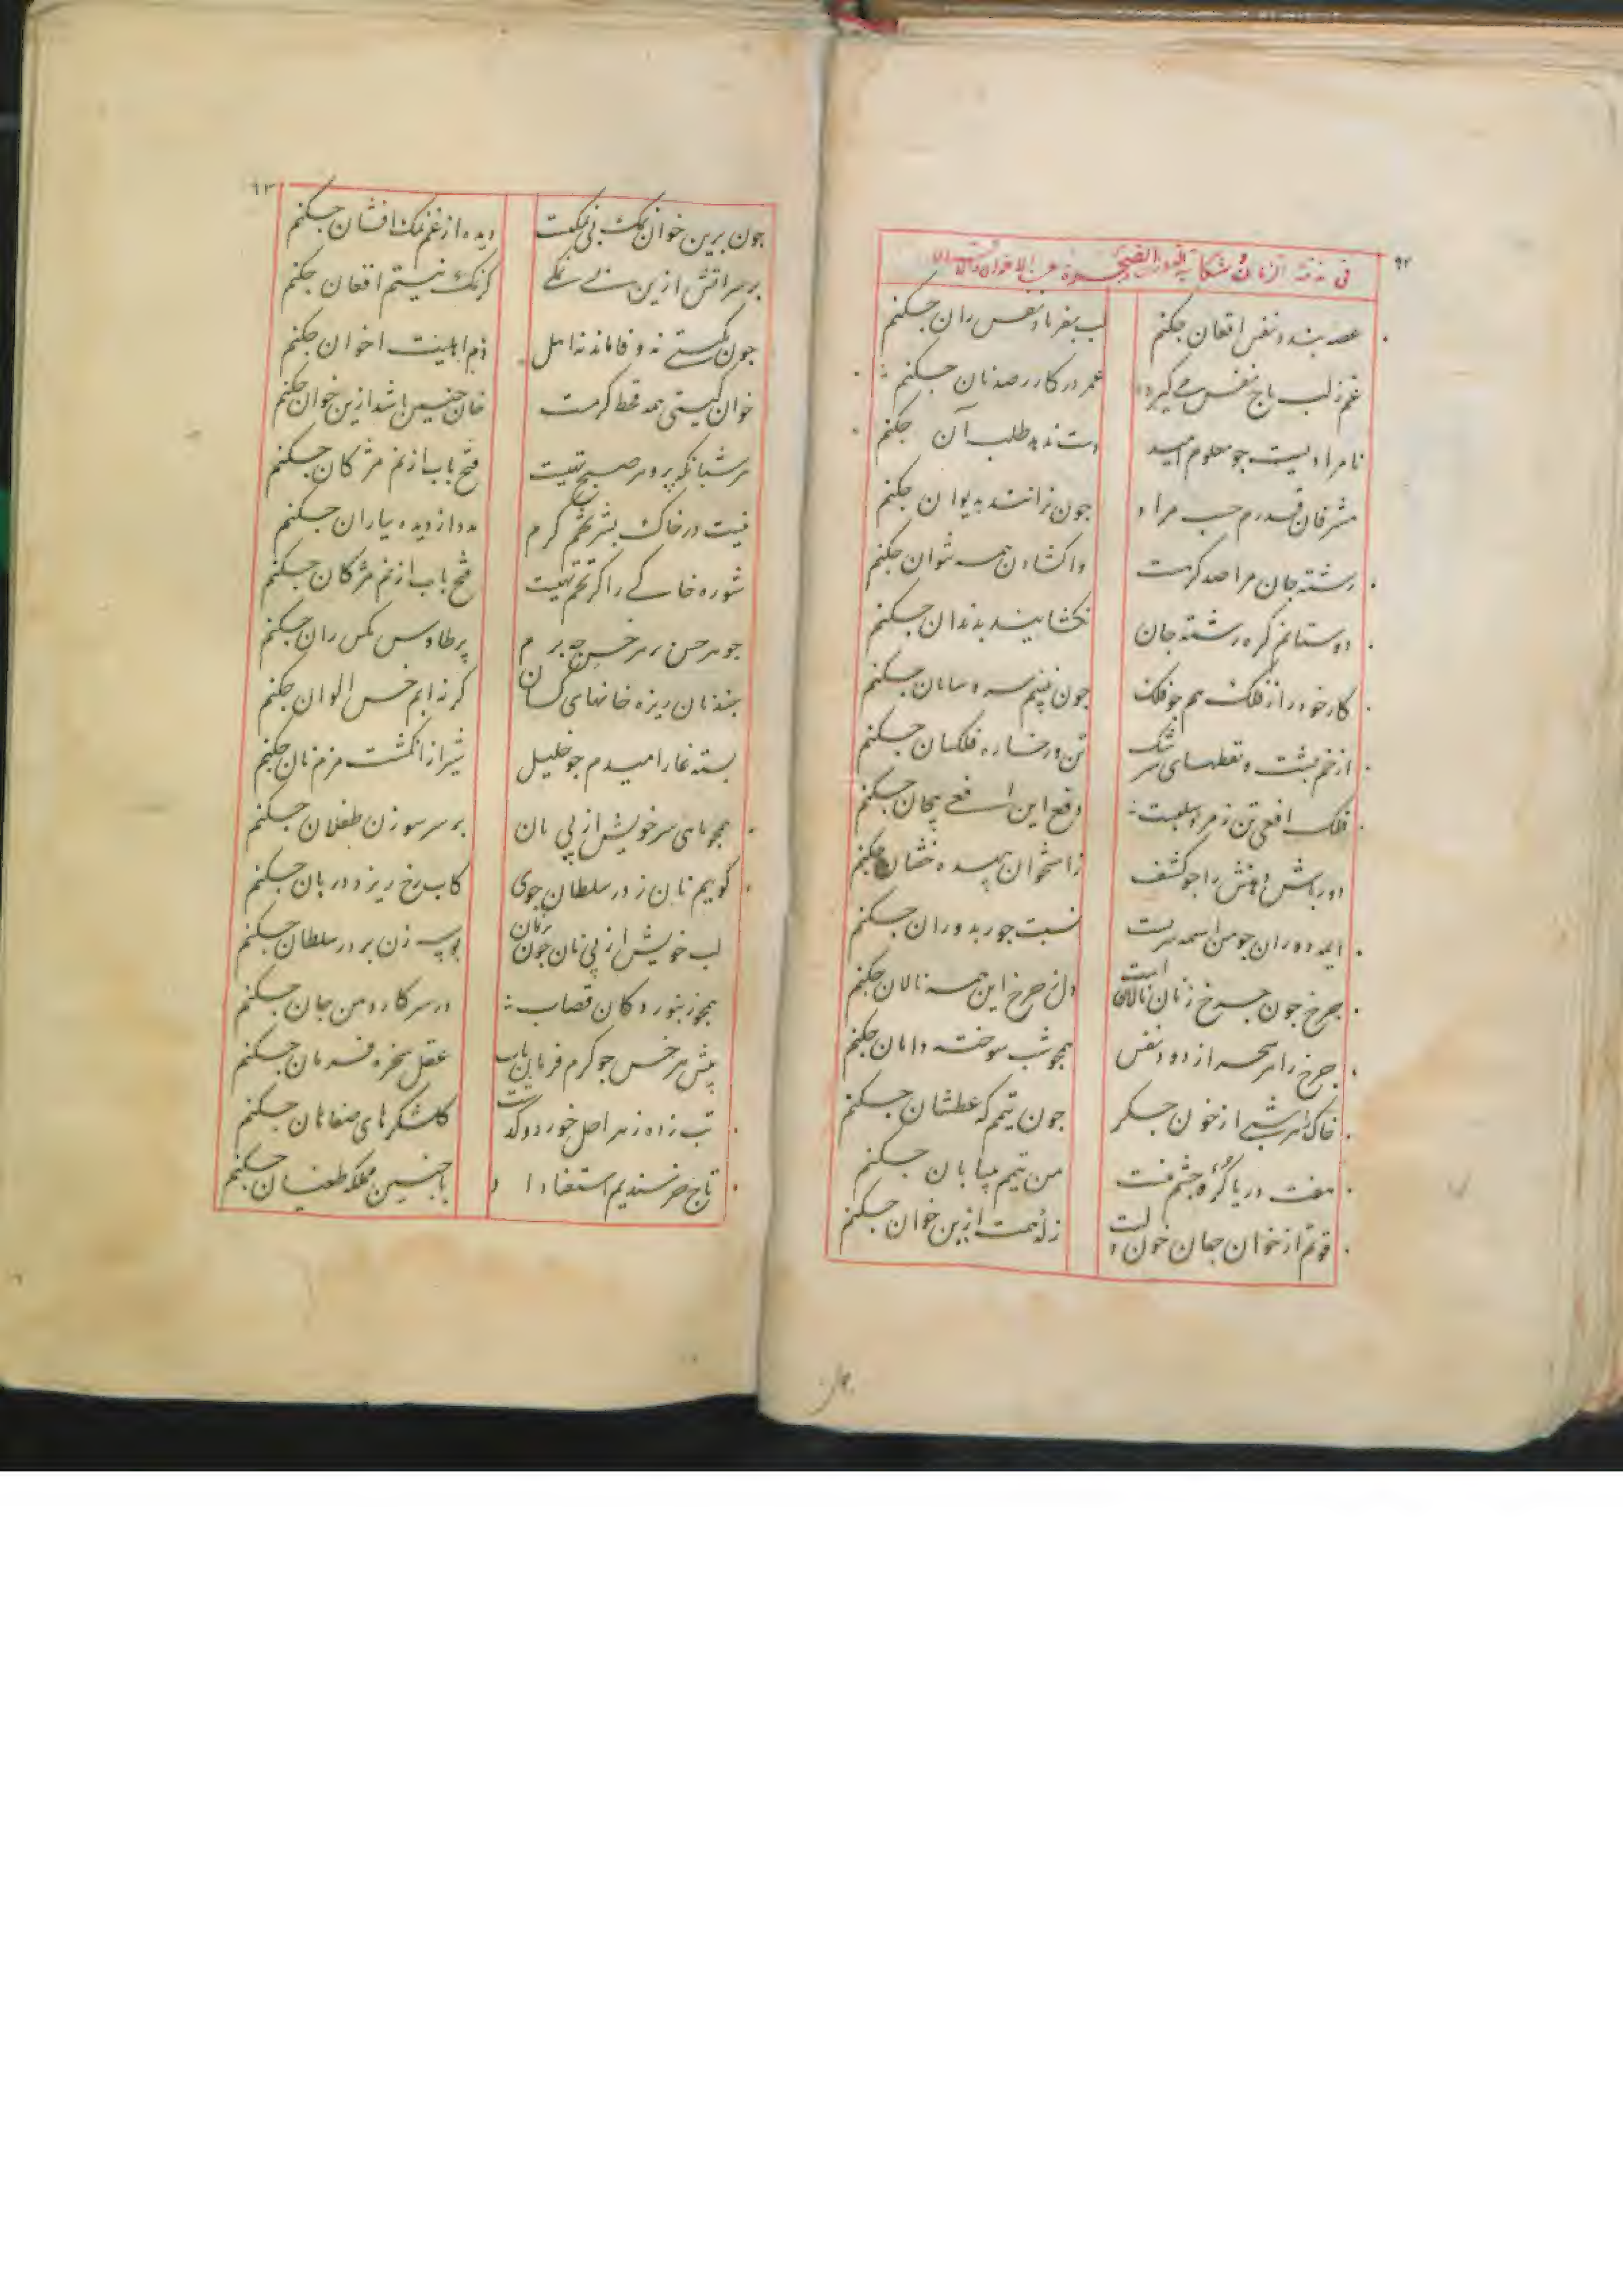 ۹۲
فی مذمة الزمان و شکایة
غصه بندد نفس افغان چکنم
لب بفریاد نفس ران چکنم
غم ز لب باج نفس می گیرد
عمر در کار رصدنان چکنم
نامرادیست جو معلوم امید
دست ندهد طلب آن جکنم
مشرفان قدرم حسب مراد
جون نرانند بدیوان جکنم
رشته جان مرا صد کرهست
واکشادن همه نتوان جکنم
دوستانم کره رشته جان
نکشایند بدندان جکنم
کار خود را ز فلک هم جو فلک
جون نبینم سر و سامان جکنم
از خم پشت و نقطهای سرشک
تن و رخساره فلکسان جکنم
فلک افعی تن زمرد سلبست
دفع این افعی پیجان جکنم
دور باش دهنش را جو کشف
ز استخوان جکنم
ایمه دوران جو من اسمه سرست
نسبت جور بدوران جکنم
جرخ جون جرخ زنان نالانست
دل ز جرخ این همه نالان جکنم
جرخ را هر سحر از دود نفس
همجو شب سوخته دامان جکنم
خاک را هر شبی از خون جکر
جون یتیم که عطشان جکنم
هفت دریا کرو جشم منست
من تیمم ببیابان جکنم
قوتم از خوان جهان خون دلست
زله همت ازین خوان جکنم
۹۳
جون برین خوان نمک بی نمکیست
دیده از غم نمک افشان جکنم
بر سر آتش ازین بی نمکی
کر نمک نیستم افغان جکنم
جون بکیتی نه وفا ماند نه اهل
ذم اهلیت اخوان جکنم
خوان کیتی همه قحط کرمست
خان جنین باشد ازین خوان جکنم
هر شبانکه پر و هر صبح تهیست
فتح باب از نم مژکان جکنم
نیست در خاک بشر تخم کرم
مدد از دیده باران جکنم
شوره خاکی را کز تخم تهیست
فتح باب از نم مژکان جکنم
جوهر حس بر هر خس جه برم
پر طاوس مکس ران جکنم
جند نان ریزه خانهای کسان
کر نه ابم خس الوان جکنم
بسته غار امیدم جو خلیل
شیر از انکشت مزم نان جکنم
همجو مای سر خویش از پی نان
بر سر سوزن طفلان جکنم
کویم نان ز در سلطان جوی
کاب رخ ریزد دربان جکنم
لب خویش از پی نان جون زنان
بوسه زن بر در سلطان جکنم
همجو زنبور دکان قصاب
در سر کار دهن جان جکنم
پیش هر خس جو کرم فرمان یافت
عقل سخره فرمان جکنم
تب زده زهر اجل خورد و کذشت
کلشکرهای صفاهان جکنم
تاج خرسندیم استغنا داد
باجنین مملکه طغیان جکنم